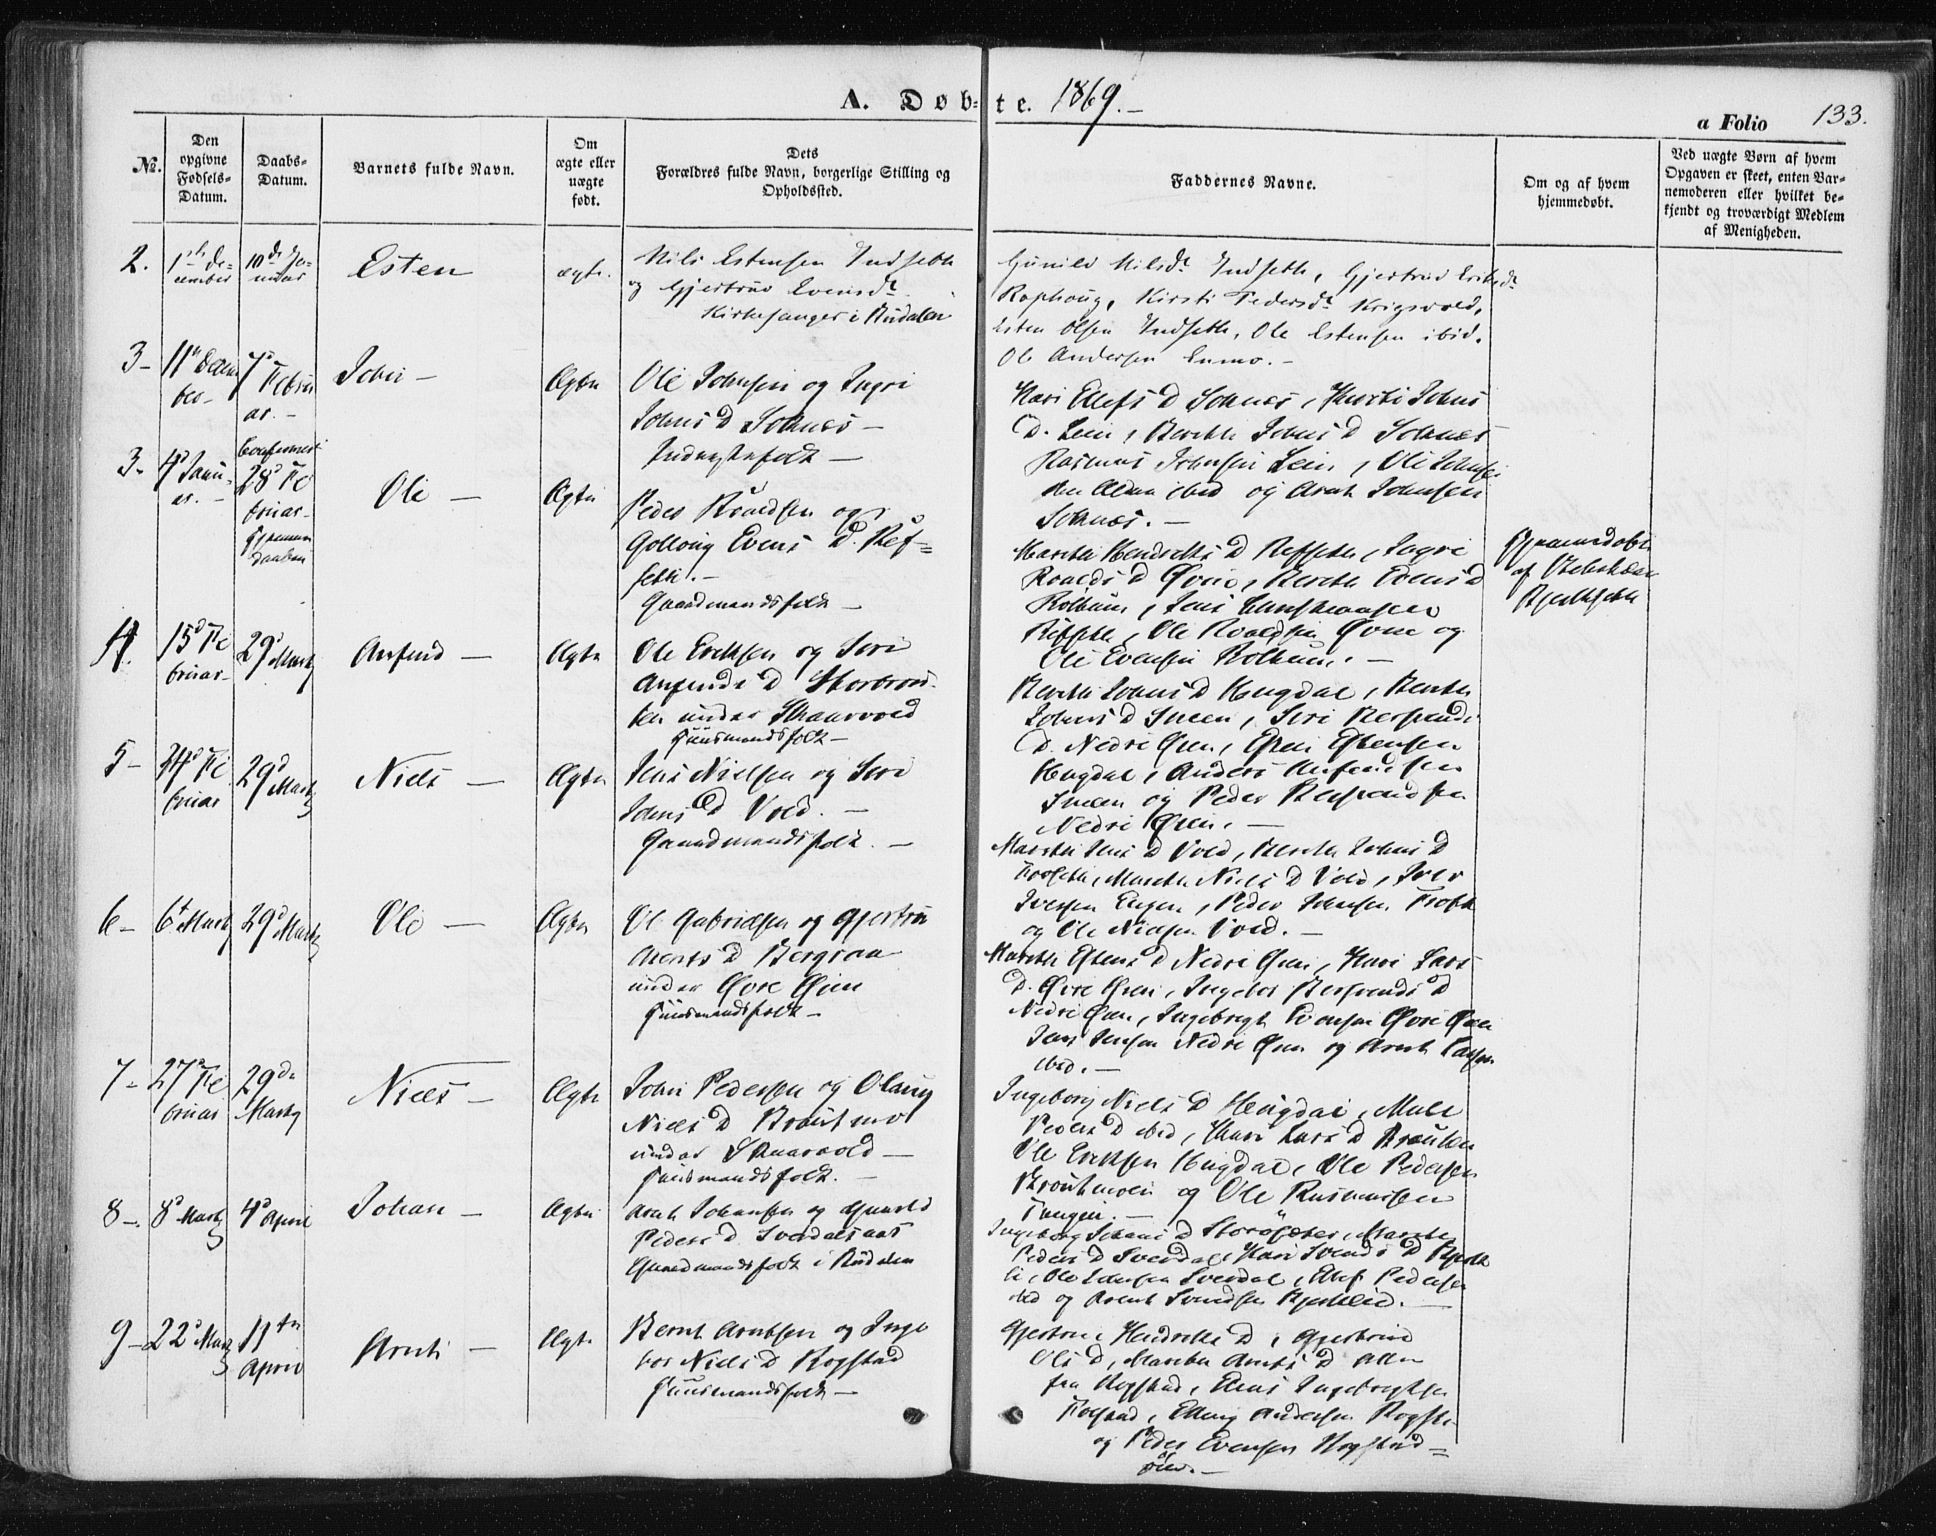 A. Døbte. 1869.–
a Folio 133.
No.
Den opgivne Fødsels-Datum.
Daabs-Datum.
Barnets fulde Navn.
Om ægte eller uægte født.
Dets Forældres fulde Navn, borgerlige Stilling og Opholdssted.
Faddernes Navne.
Om og af hvem hjemmedøbt.
Ved uægte Børn af hvem Opgaven er skeet, enten Barnemoderen eller hvilket bekjendt og troværdigt Medlem af Menigheden.
2.
10de Ja-
nuar
Esten
ægte.
Nils Estensen Indseth
og Gjertrud Evensdr.
Kirkesanger i Budalen
Gunild Nilsdr Indseth, Gjertrud Eriksdr
Raphoug, Kirsti Pedersdr Krigsvold,
Esten Olsen Indseth, Ole Estensen ibid.
Ole Andersen Enmo.–
3–
John –
Ægte
Ole Johnsen og Ingri
Johns D Soknes –
Inderstfolk –
Kari Ellefs D Soknes, Kirsti Johns
D. Lein, Berethe Johns D Soknes
Rasmus Johnsen Lein, Ole Johnsen
ibid og Arnt Johnsen
Soknes. –
3–
4d Janu-
ar. –
28d Fe
bruar
Ole –
Ægte
Peder Roaldsen og
Evens D. Ref-
seth. –
Gaardmandsfolk –
Marethe Hendriks D Refseth, Ingri
Roalds D Øvrie, Berethe Evens D
Refseth, Ole Roaldsen Øvrie og
Ole Evensen
Hjemmedøbt
af
4.
15d Fe
bruar
29d Marts
Anfind –
Ægte
Ole Eriksen og Siri
Anfinds D
ten under Skaarvold
Huusmandsfolk –
Berethe Johns D Hugdal, Berethe
Johns D Sneen, Siri
D. Nedre Øien, Esten Estensen
Hugdal, Anders Anfindsen
Sneen og Peder
Nedre Øien. –
5–
24d Fe
bruar
29d Marts
Niels –
Ægte
Jens Nielsen og Siri
Johns D Vold. –
Gaardmandsfolk. –
Marethe Jens D Vold, Berethe Johns D
Froseth, Marethe Niels D Vold, Iver
Iversen Engen, Peder Johnsen
og Ole Nielsen Vold. –
6–
6t Marts
29d Marts
Ole –
Ægte
Ole Gabrielsen og Gjertru
Arents D Bergsaa
under Øvre Øien
Huusmandsfolk –
Marethe Estens D Nedre Øien, Kari Lars
D. Øvre Øien, Ingebor
Nedre Øien, Ingebrigt Evensen Øvre Øien
Jens Jensen Nedre Øien og Arnt Larsen
ibid. –
7–
27d Fe
bruar
29de
Marts
Niels –
Ægte
John Pedersen og Olaug
Niels D Brautmo
under Skaarvold –
Huusmandsfolk. –
Ingeborg Niels D Hugdal, Mali
Peders D ibid, Kari Lars D
Ole Eriksen Hugdal, Ole Pedersen
og Ole Rasmussen
Tangen. –
8–.
8d Marts
4d April
Johan –
Ægte
Arnt Johansen og Gunild
Peders D Sverdalsaas
Gaardmandsfolk i Budalen
Ingeborg Johans D Storøsæter, Marethe
Peders D Sverdal, Kari Svends D
li, Ole Johnsen Sverdal, Ellef Pedersen
ibid og Arent Svendsen –
9–
22d Marts
11te
April
Arnt –
Ægte
Bernt Arntsen og Inge
bor Niels D Rogstad
Huusmandsfolk –
Gjertru Hendriks D, Gjertrud
Ols D, Marethe Arnts D alle
fra Rogstad, Elias Ingebrigtsen
Folstad, Elling Andersen Rogsta
og Peder Evensen Rogstad-
øien. –